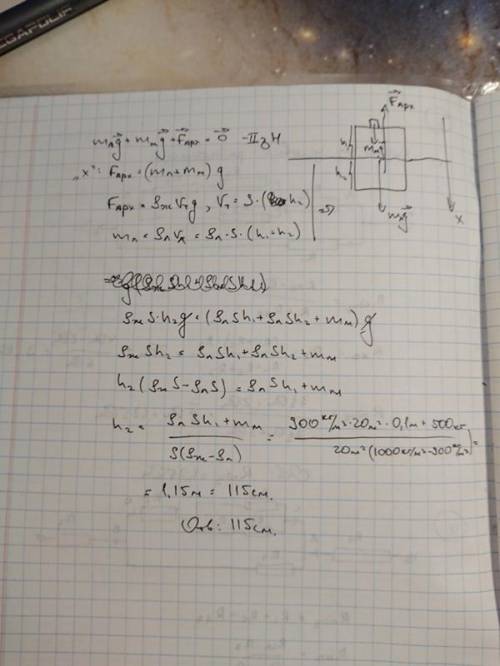 MEGAPOLIS
m_л g⃗ + m_м g⃗ + F⃗_Арх = 0⃗ - II з Н
"x": F_Арх = (m_л + m_м) g
F_Арх = ρ_ж V_т g, V_т = S · (h₂)
m_л = ρ_л V_л = ρ_л · S · (h₁ + h₂)
=>
ρ_ж S · h₂ g = (ρ_л S h₁ + ρ_л S h₂ + m_м) g
ρ_ж S h₂ = ρ_л S h₁ + ρ_л S h₂ + m_м
h₂ (ρ_ж S - ρ_л S) = ρ_л S h₁ + m_м
h₂ = (ρ_л S h₁ + m_м) / (S(ρ_ж - ρ_л)) = (900 кг/м³ · 20 м² · 0,1 м + 500 кг) / (20 м² (1000 кг/м³ - 900 кг/м³)) =
= 1,15 м = 115 см.
Отв: 115 см.
F⃗_Арх
h₁
m_м g⃗
h₂
m_л g⃗
x